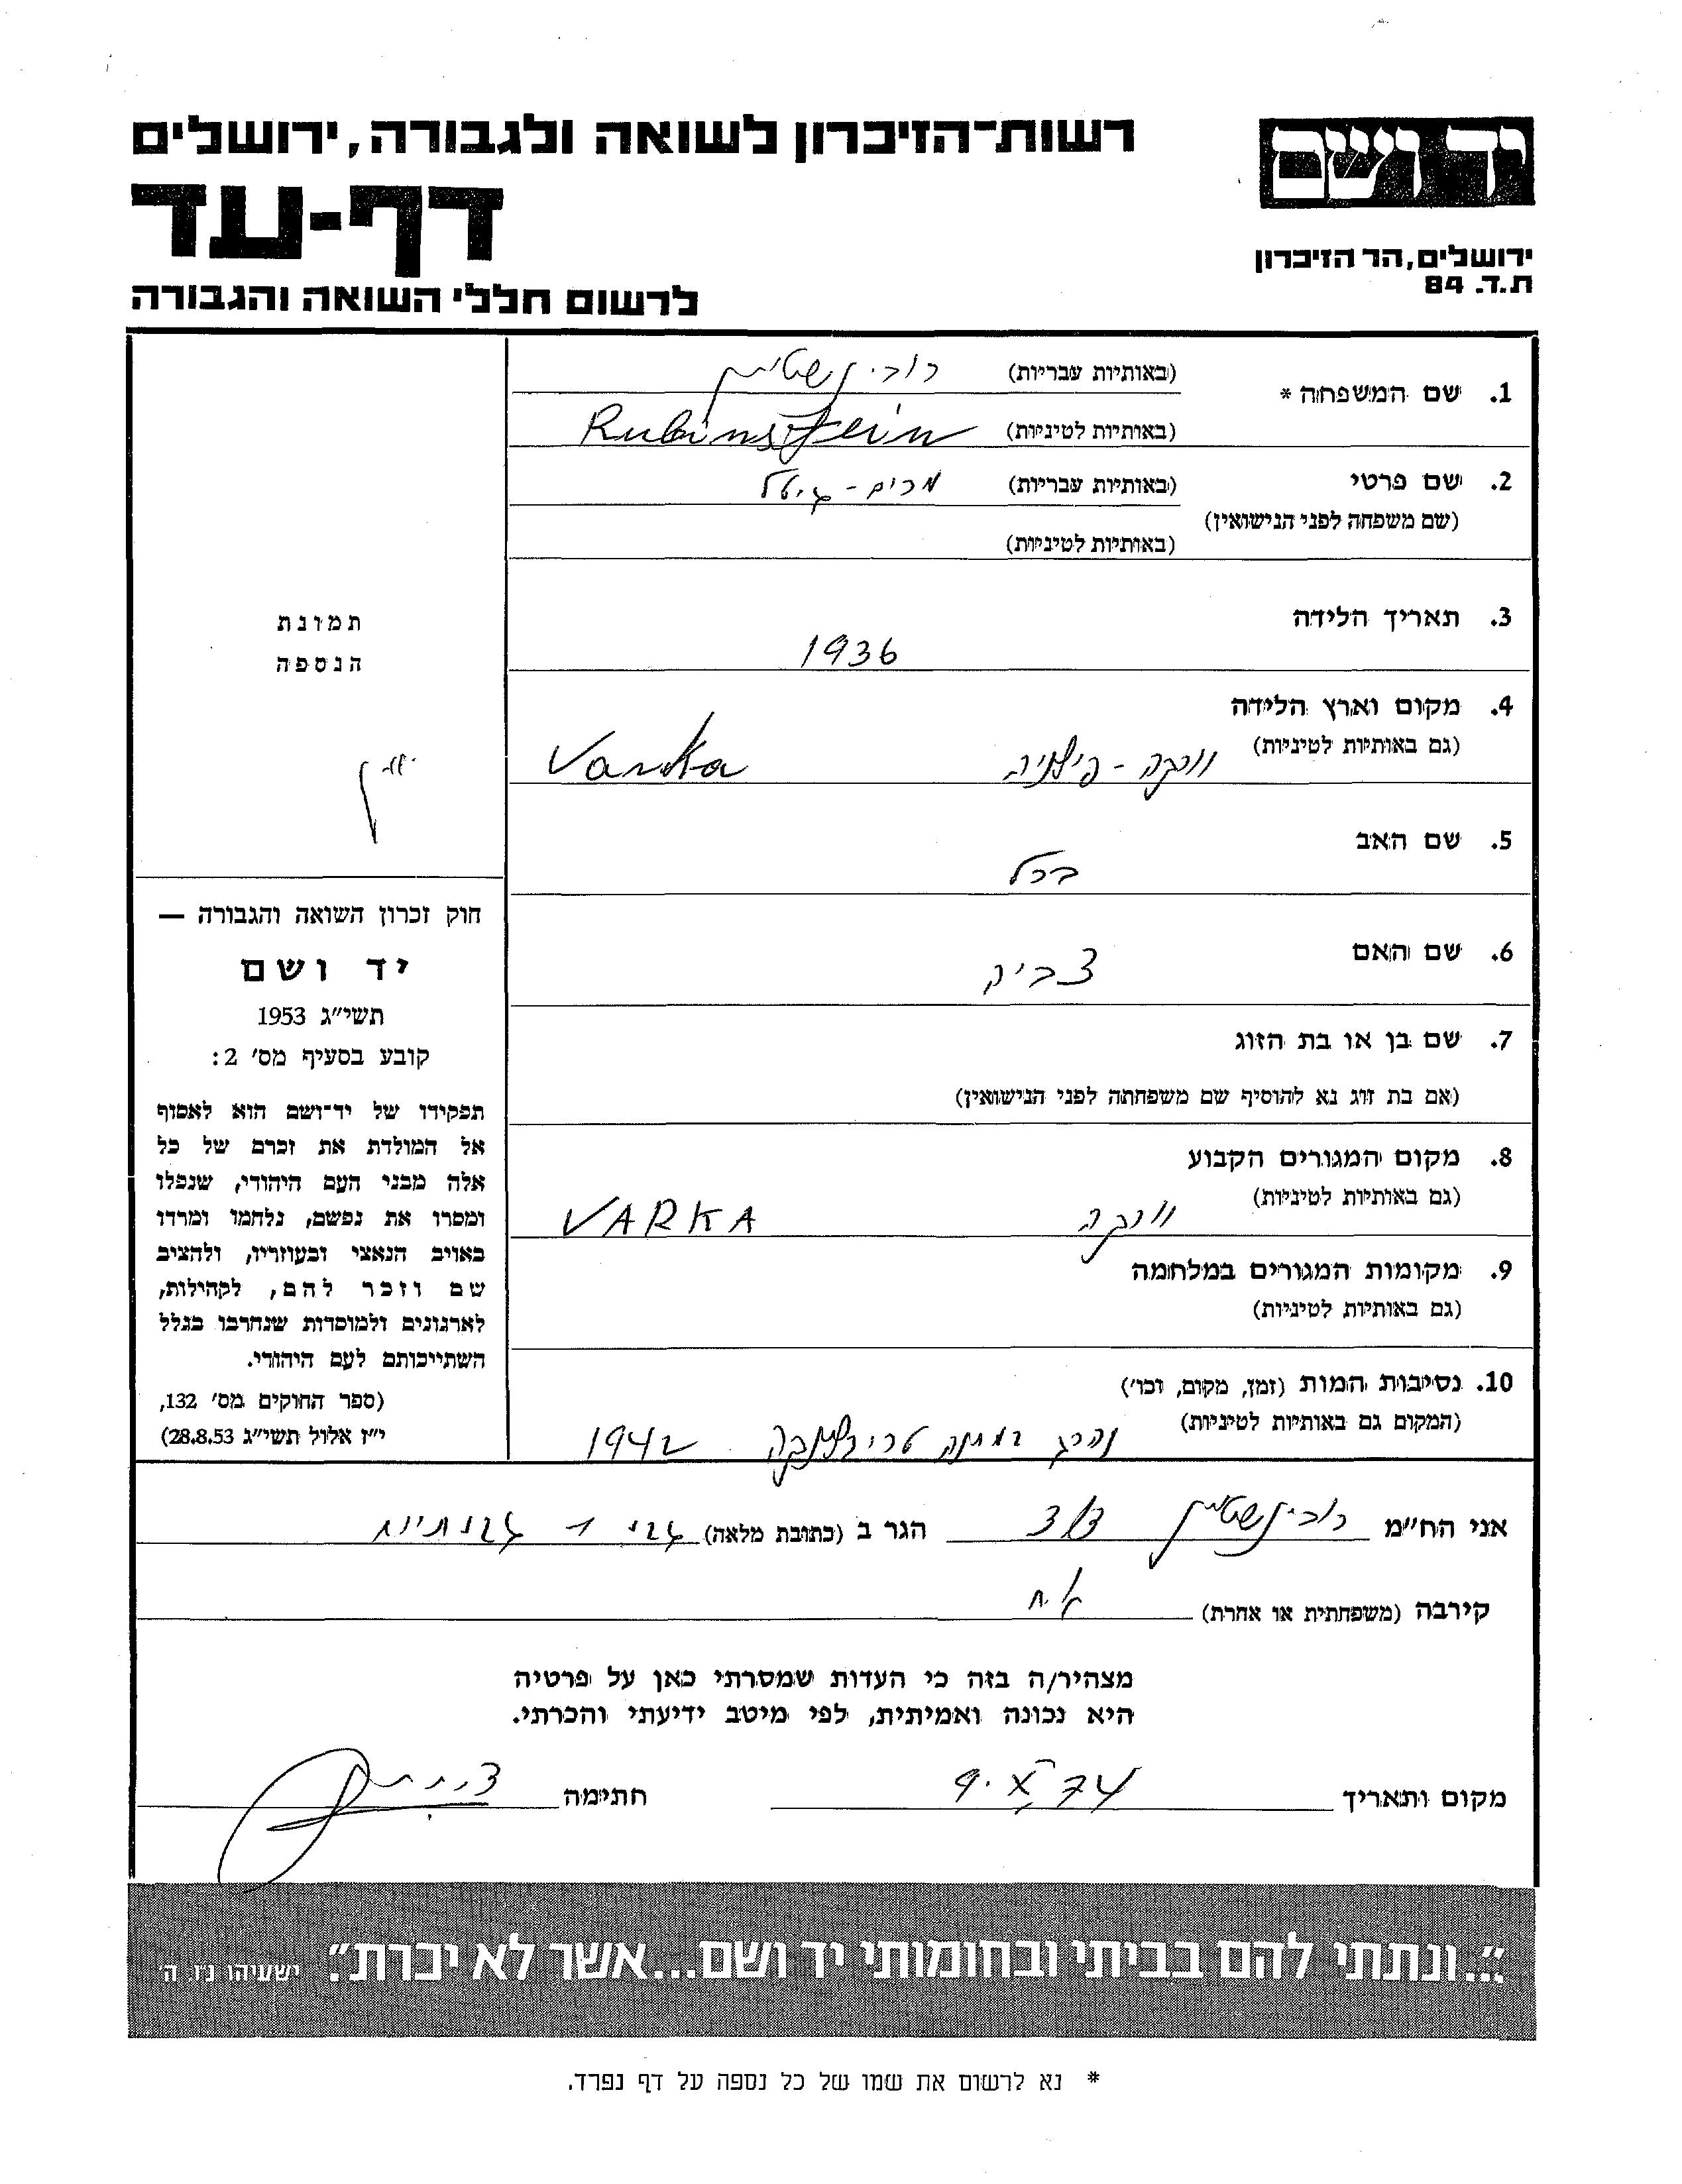 רשות־הזיכרון לשואה ולגבורה, ירושלים
דף-עד
לרשום חללי השואה והגבורה
יד ושם
ירושלים, הר הזיכרון
ת.ד. 84
1. שם המשפחה * (באותיות עבריות) רובינשטיין
(באותיות לטיניות) Rubinstein
2. שם פרטי (באותיות עבריות) מרים - גיטל
(שם משפחה לפני הנישואין)
(באותיות לטיניות)
3. תאריך הלידה 1936
4. מקום וארץ הלידה
(גם באותיות לטיניות) וורקה - פולניה Varka
5. שם האב ברל
6. שם האם
7. שם בן או בת הזוג
(אם בת זוג נא להוסיף שם משפחתה לפני הנישואין)
8. מקום המגורים הקבוע
(גם באותיות לטיניות) וורקה VARKA
9. מקומות המגורים במלחמה
(גם באותיות לטיניות)
10. נסיבות המות (זמן, מקום, וכו')
(המקום גם באותיות לטיניות) נהרג במחנה טרבלינקה 1942
תמונת
הנספה
אין
חוק זכרון השואה והגבורה —
יד ושם
תשי"ג 1953
קובע בסעיף מס' 2:
תפקידו של יד־ושם הוא לאסוף
אל המולדת את זכרם של כל
אלה מבני העם היהודי, שנפלו
ומסרו את נפשם, נלחמו ומרדו
באויב הנאצי ובעוזריו, ולהציב
שם וזכר להם, לקהילות,
לארגונים ולמוסדות שנחרבו בגלל
השתייכותם לעם היהודי.
(ספר החוקים מס' 132,
י"ז אלול תשי"ג 28.8.53)
אני הח"מ רובינשטיין הגר ב (כתובת מלאה)
קירבה (משפחתית או אחרת) אח
מצהיר/ה בזה כי העדות שמסרתי כאן על פרטיה
היא נכונה ואמיתית, לפי מיטב ידיעתי והכרתי.
מקום ותאריך 9.X.74 חתימה
"...ונתתי להם בביתי ובחומותי יד ושם...אשר לא יכרת". ישעיהו נ"ו ה'
* נא לרשום את שמו של כל נספה על דף נפרד.